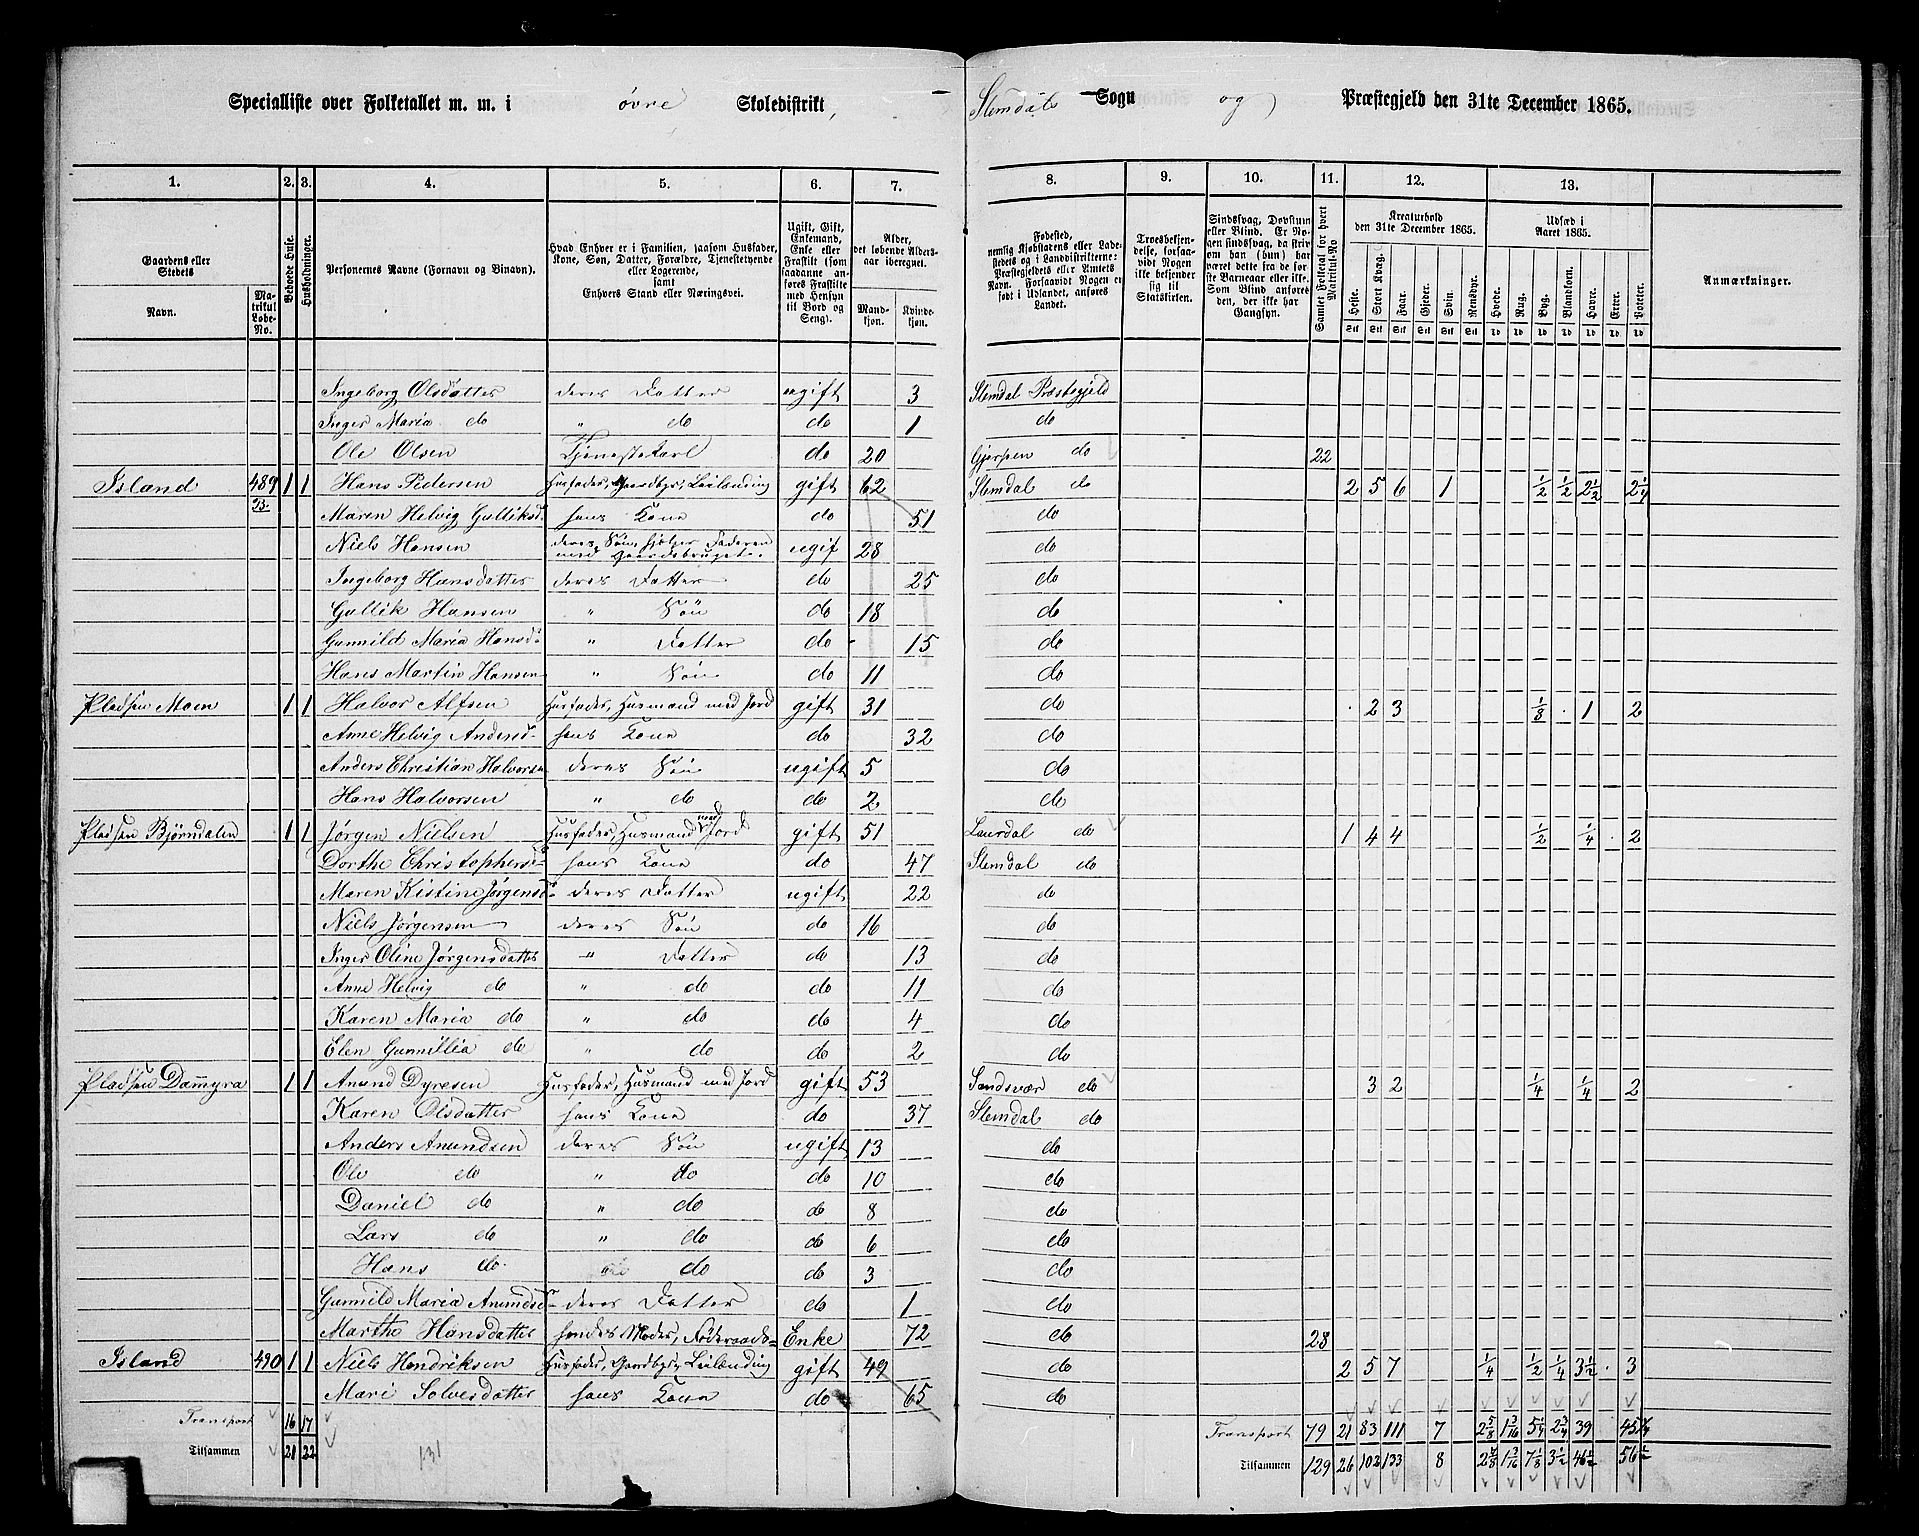 Specialliste over Folketallet m. m. i øvre Skoledistrikt, Slemdals Sogn og Præstegjeld den 31te December 1865.
1. 2. 3. 4. 5. 6. 7. 8. 9. 10. 11. 12. 13.
Gaardens eller Stedets Navn. Matrikul Løbe-No. Beboede Huse. Husholdninger. Personernes Navne (Fornavn og Binavn). Hvad Enhver er i Familien, saasom Husfader, Kone, Søn, Datter, Forældre, Tjenestetyende eller Logerende, samt Enhvers Stand eller Næringsvei. Ugift, Gift, Enkemand, Enke eller Fraskilt (som saadanne anføres Fraskilte med Hensyn til Bord og Seng). Alder, det løbende Aldersaar iberegnet. Mandkjøn. Kvindekjøn.
Fødested, nemlig Kjøbstadens eller Ladestedets og i Landdistrikterne: Præstegjeldets eller Amtets Navn. Forsaavidt Nogen er født i Udlandet, anføres Landet. Troesbekjendelse, forsaavidt Nogen ikke bekjender sig til Statskirken. Sindssvag, Døvstum eller Blind. Er Nogen sindssvag, da skrives om han (hun) har været dette fra de første Barneaar eller ikke. Som Blind anføres den, der ikke har Gangsyn. Samlet Folketal for hvert Matrikul-No
Kreaturhold den 31te December 1865. Heste. Stort Kvæg. Faar. Gjeder. Svin. Rensdyr. Udsæd i Aaret 1865. Hvede. Rug. Byg. Blandkorn. Havre. Erter. Poteter. Anmærkninger.
Ingeborg Olsdatter deres Datter ugift 3 Slemdal Præstegjeld
Inger Maria do " do do 1 do
Ole Olsen Tjenestekarl do 20 Gjerpen do 22
Island 489 1 1 Hans Pedersen Husfader, Gaardbr., Leilending gift 62 Slemdal do 2 5 6 1 1/2 1/2 2 1/2 2 1/4
Maren Helvig Gulliksd. hans Kone do 51 do
Niels Hansen deres Søn, hjelper Faderen med Gaardsbruget ugif 28 do
Ingeborg Hansdatter deres Datter do 25 do
Gullik Hansen " Søn do 18 do
Gunnild Maria Hansd. " Datter do 15 do
Hans Martin Hansen " Søn do 11 do
Pladsen Moen 1 1 Halvor Alfsen Husfader, Husmand med Jord gift 31 do 2 3 1/8 1 2
Anne Helvig Andersd. hans Kone do 32 do
Anders Christian Halvorsen deres Søn ugift 5 do
Hans Halvorsen " do do 2 do
Pladsen Bjørndalen 1 1 Jørgen Nielsen Husfader, Husmand med Jord gift 51 Laurdal do 1 4 4 1/2 1/4 2
Dorthe Christophersd. hans Kone do 47 Slemdal do
Maren Kistine Jørgensd. deres Datter ugift 22 do
Niels Jørgensen deres Søn do 16 do
Inger Oline Jørgensdatter " Datter do 13 do
Anne Helvig do " do do 11 do
Karen Maria do " do do 4 do
Elen Gunnillia do " do do 2 do
Pladsen Dammyra 1 1 Amund Dyresen Husfader, Husmand med Jord gift 53 Sandsvær do 3 2 1/4 1/4 2
Karen Olsdatter hans Kone do 37 Slemdal do
Anders Amundsen deres Søn ugift 13 do
Ole do " do do 10 do
Daniel do " do do 8 do
Lars do " do do 6 do
Hans do " do do 3 do
Gunnild Maria Amundsd. deres Datter do 1 do
Marthe Hansdatter hendes Moder, Føderaads- Enke 72 do 28
Island 490 1 1 Niels Hendriksen Husfader, Gaardbr., Leilending gift 49 do 2 5 7 1/4 1/2 1/4 3 1/2 3
Mari Solvesdatter hans Kone do 65 do
Transport 16 17 Transport 79 21 83 111 7 2 5/8 1 3/16 5 1/4 2 3/4 39
Tilsammen 21 22 131 Tilsammen 129 26 102 133 8 2 7/8 1 3/16 7 1/8 3 1/2 46 1/2 56 1/2